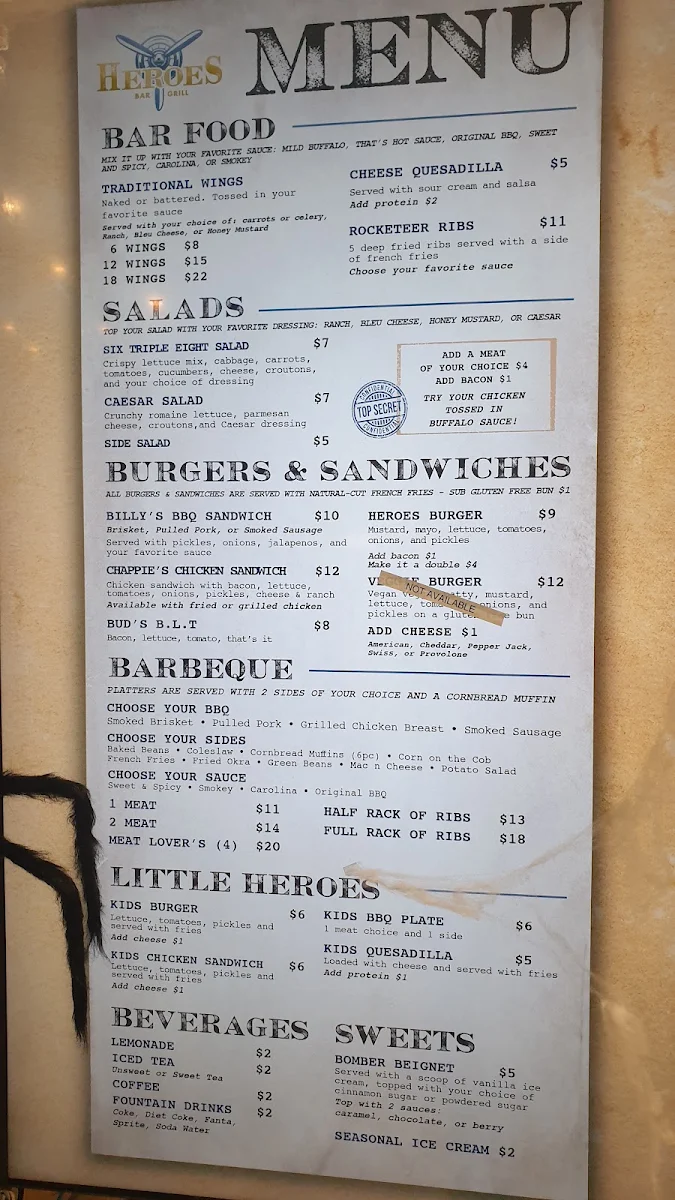 HEROES
BAR GRILL
MENU
BAR FOOD
MIX IT UP WITH YOUR FAVORITE SAUCE: MILD BUFFALO, THAT'S HOT SAUCE, ORIGINAL BBQ, SWEET
AND SPICY, CAROLINA, OR SMOKEY
TRADITIONAL WINGS
Naked or battered. Tossed in your
favorite sauce
Served with your choice of: carrots or celery,
Ranch, Bleu Cheese, or Honey Mustard
6 WINGS $8
12 WINGS $15
18 WINGS $22
CHEESE QUESADILLA $5
Served with sour cream and salsa
Add protein $2
ROCKETEER RIBS $11
5 deep fried ribs served with a side
of french fries
Choose your favorite sauce
SALADS
TOP YOUR SALAD WITH YOUR FAVORITE DRESSING: RANCH, BLEU CHEESE, HONEY MUSTARD, OR CAESAR
SIX TRIPLE EIGHT SALAD $7
Crispy lettuce mix, cabbage, carrots,
tomatoes, cucumbers, cheese, croutons,
and your choice of dressing
CAESAR SALAD $7
Crunchy romaine lettuce, parmesan
cheese, croutons,and Caesar dressing
SIDE SALAD $5
ADD A MEAT
OF YOUR CHOICE $4
ADD BACON $1
TRY YOUR CHICKEN
TOSSED IN
BUFFALO SAUCE!
CONFIDENTIAL
TOP SECRET
CONFIDENTIAL
BURGERS & SANDWICHES
ALL BURGERS & SANDWICHES ARE SERVED WITH NATURAL-CUT FRENCH FRIES - SUB GLUTEN FREE BUN $1
BILLY'S BBQ SANDWICH $10
Brisket, Pulled Pork, or Smoked Sausage
Served with pickles, onions, jalapenos, and
your favorite sauce
CHAPPIE'S CHICKEN SANDWICH $12
Chicken sandwich with bacon, lettuce,
tomatoes, onions, pickles, cheese & ranch
Available with fried or grilled chicken
BUD'S B.L.T $8
Bacon, lettuce, tomato, that's it
HEROES BURGER $9
Mustard, mayo, lettuce, tomatoes,
onions, and pickles
Add bacon $1
Make it a double $4
BURGER $12
NOT AVAILABLE
Vegan patty, mustard,
lettuce, onions, and
pickles on a bun
ADD CHEESE $1
American, Cheddar, Pepper Jack,
Swiss, or Provolone
BARBEQUE
PLATTERS ARE SERVED WITH 2 SIDES OF YOUR CHOICE AND A CORNBREAD MUFFIN
CHOOSE YOUR BBQ
Smoked Brisket • Pulled Pork • Grilled Chicken Breast • Smoked Sausage
CHOOSE YOUR SIDES
Baked Beans • Coleslaw • Cornbread Muffins (6pc) • Corn on the Cob
French Fries • Fried Okra • Green Beans • Mac n Cheese • Potato Salad
CHOOSE YOUR SAUCE
Sweet & Spicy • Smokey • Carolina • Original BBQ
1 MEAT $11
2 MEAT $14
MEAT LOVER'S (4) $20
HALF RACK OF RIBS $13
FULL RACK OF RIBS $18
LITTLE HEROES
KIDS BURGER $6
Lettuce, tomatoes, pickles and
served with fries
Add cheese $1
KIDS CHICKEN SANDWICH $6
Lettuce, tomatoes, pickles and
served with fries
Add cheese $1
KIDS BBQ PLATE $6
1 meat choice and 1 side
KIDS QUESADILLA $5
Loaded with cheese and served with fries
Add protein $1
BEVERAGES
LEMONADE $2
ICED TEA $2
Unsweet or Sweet Tea
COFFEE $2
FOUNTAIN DRINKS $2
Coke, Diet Coke, Fanta,
Sprite, Soda Water
SWEETS
BOMBER BEIGNET $5
Served with a scoop of vanilla ice
cream, topped with your choice of
cinnamon sugar or powdered sugar
Top with 2 sauces:
caramel, chocolate, or berry
SEASONAL ICE CREAM $2